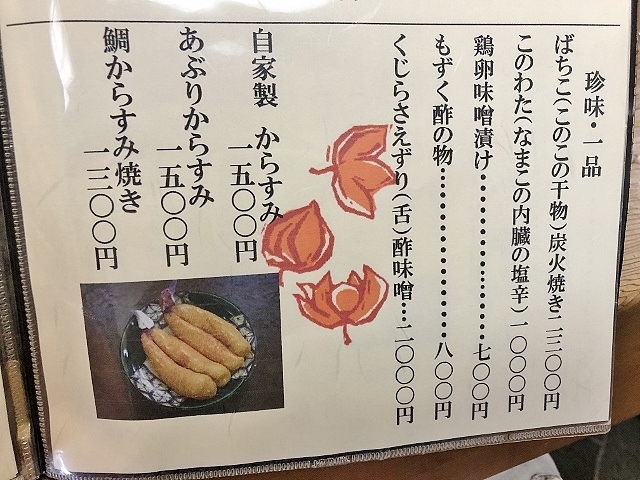 珍味・一品
ばちこ(このこの干物)炭火焼き二三〇〇円
このわた(なまこの内臓の塩辛)一〇〇〇円
鶏卵味噌漬け・・・・・・・・・・・・・・七〇〇円
もずく酢の物・・・・・・・・・・・・・・八〇〇円
くじらさえずり(舌)酢味噌・・・二〇〇〇円
自家製 からすみ
一五〇〇円
あぶりからすみ
一五〇〇円
鯛からすみ焼き
一三〇〇円